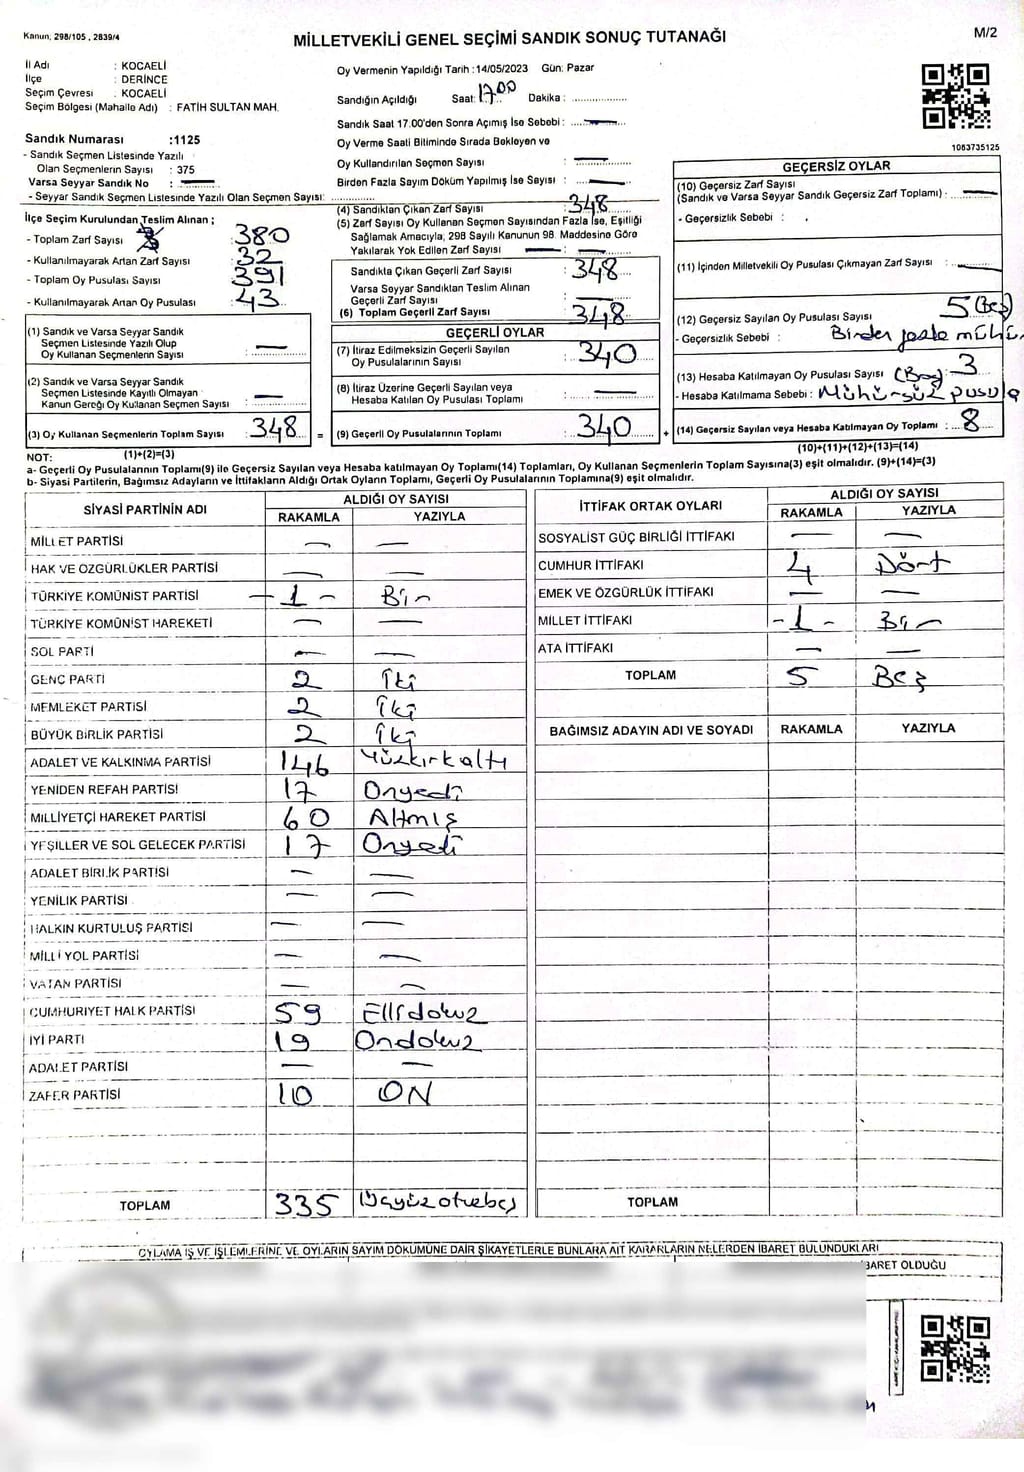 Kanun, 298/105 , 2839/4
MİLLETVEKİLİ GENEL SEÇİMİ SANDIK SONUÇ TUTANAĞI
M/2
İl Adı : KOCAELİ
İlçe : DERİNCE
Seçim Çevresi : KOCAELİ
Seçim Bölgesi (Mahalle Adı) : FATİH SULTAN MAH.
Sandık Numarası :1125
- Sandık Seçmen Listesinde Yazılı
Olan Seçmenlerin Sayısı : 375
Varsa Seyyar Sandık No : —
- Seyyar Sandık Seçmen Listesinde Yazılı Olan Seçmen Sayısı: —
Oy Vermenin Yapıldığı Tarih :14/05/2023 Gün: Pazar
Sandığın Açıldığı Saat: 17.00 Dakika : ..............
Sandık Saat 17.00'den Sonra Açımış İse Sebebi : —
Oy Verme Saati Bitiminde Sırada Bekleyen ve
Oy Kullandırılan Seçmen Sayısı : —
Birden Fazla Sayım Döküm Yapılmış İse Sayısı : —
1063735125
İlçe Seçim Kurulundan Teslim Alınan ;
- Toplam Zarf Sayısı : 380
- Kullanılmayarak Artan Zarf Sayısı : 32
- Toplam Oy Pusulası Sayısı : 391
- Kullanılmayarak Artan Oy Pusulası : 43
(1) Sandık ve Varsa Seyyar Sandık
Seçmen Listesinde Yazılı Olup
Oy Kullanan Seçmenlerin Sayısı : —
(2) Sandık ve Varsa Seyyar Sandık
Seçmen Listesinde Kayıtlı Olmayan
Kanun Gereği Oy Kullanan Seçmen Sayısı : —
(3) Oy Kullanan Seçmenlerin Toplam Sayısı : 348 =
(1)+(2)=(3)
(4) Sandıktan Çıkan Zarf Sayısı : 348
(5) Zarf Sayısı Oy Kullanan Seçmen Sayısından Fazla İse, Eşitliği
Sağlamak Amacıyla; 298 Sayılı Kanunun 98. Maddesine Göre
Yakılarak Yok Edilen Zarf Sayısı : —
Sandıkla Çıkan Geçerli Zarf Sayısı : 348
Varsa Seyyar Sandıktan Teslim Alınan
Geçerli Zarf Sayısı : —
(6) Toplam Geçerli Zarf Sayısı : 348
GEÇERLİ OYLAR
(7) İtiraz Edilmeksizin Geçerli Sayılan
Oy Pusulalarının Sayısı : 340
(8) İtiraz Üzerine Geçerli Sayılan veya
Hesaba Katılan Oy Pusulası Toplamı : —
(9) Geçerli Oy Pusulalarının Toplamı : 340 +
GEÇERSİZ OYLAR
(10) Geçersiz Zarf Sayısı
(Sandık ve Varsa Seyyar Sandık Geçersiz Zarf Toplamı) : —
- Geçersizlik Sebebi :
(11) İçinden Milletvekili Oy Pusulası Çıkmayan Zarf Sayısı : —
(12) Geçersiz Sayılan Oy Pusulası Sayısı : 5 (Beş)
- Geçersizlik Sebebi : Birden fazla mühür
(13) Hesaba Katılmayan Oy Pusulası Sayısı 3
- Hesaba Katılmama Sebebi : Mühürsüz pusula
(14) Geçersiz Sayılan veya Hesaba Katılmayan Oy Toplamı : 8
(10)+(11)+(12)+(13)=(14)
NOT:
a- Geçerli Oy Pusulalarının Toplamı(9) ile Geçersiz Sayılan veya Hesaba katılmayan Oy Toplamı(14) Toplamları, Oy Kullanan Seçmenlerin Toplam Sayısına(3) eşit olmalıdır. (9)+(14)=(3)
b- Siyasi Partilerin, Bağımsız Adayların ve İttifakların Aldığı Ortak Oyların Toplamı, Geçerli Oy Pusulalarının Toplamına(9) eşit olmalıdır.
SİYASİ PARTİNİN ADI ALDIĞI OY SAYISI
RAKAMLA YAZIYLA
MİLLET PARTİSİ — —
HAK VE ÖZGÜRLÜKLER PARTİSİ — —
TÜRKİYE KOMÜNİST PARTİSİ — 1 — Bir
TÜRKİYE KOMÜNİST HAREKETİ — —
SOL PARTİ — —
GENÇ PARTİ 2 İki
MEMLEKET PARTİSİ 2 İki
BÜYÜK BİRLİK PARTİSİ 2 İki
ADALET VE KALKINMA PARTİSİ 146 Yüzkırkaltı
YENİDEN REFAH PARTİSİ 17 Onyedi
MİLLİYETÇİ HAREKET PARTİSİ 60 Altmış
YEŞİLLER VE SOL GELECEK PARTİSİ 17 Onyedi
ADALET BİRLİK PARTİSİ — —
YENİLİK PARTİSİ — —
HALKIN KURTULUŞ PARTİSİ — —
MİLLİ YOL PARTİSİ — —
VATAN PARTİSİ — —
CUMHURİYET HALK PARTİSİ 59 Ellidokuz
İYİ PARTİ 19 Ondokuz
ADALET PARTİSİ — —
ZAFER PARTİSİ 10 ON
TOPLAM 335 Üçyüzotuzbeş
İTTİFAK ORTAK OYLARI ALDIĞI OY SAYISI
RAKAMLA YAZIYLA
SOSYALİST GÜÇ BİRLİĞİ İTTİFAKI — —
CUMHUR İTTİFAKI 4 Dört
EMEK VE ÖZGÜRLÜK İTTİFAKI — —
MİLLET İTTİFAKI - 1 - Bir
ATA İTTİFAKI — —
TOPLAM 5 Beş
BAĞIMSIZ ADAYIN ADI VE SOYADI RAKAMLA YAZIYLA
TOPLAM
OYLAMA İŞ VE İŞLEMLERİNE VE OYLARIN SAYIM DÖKÜMÜNE DAİR ŞİKAYETLERLE BUNLARA AİT KARARLARIN NELERDEN İBARET BULUNDUKLARI
BARET OLDUĞU